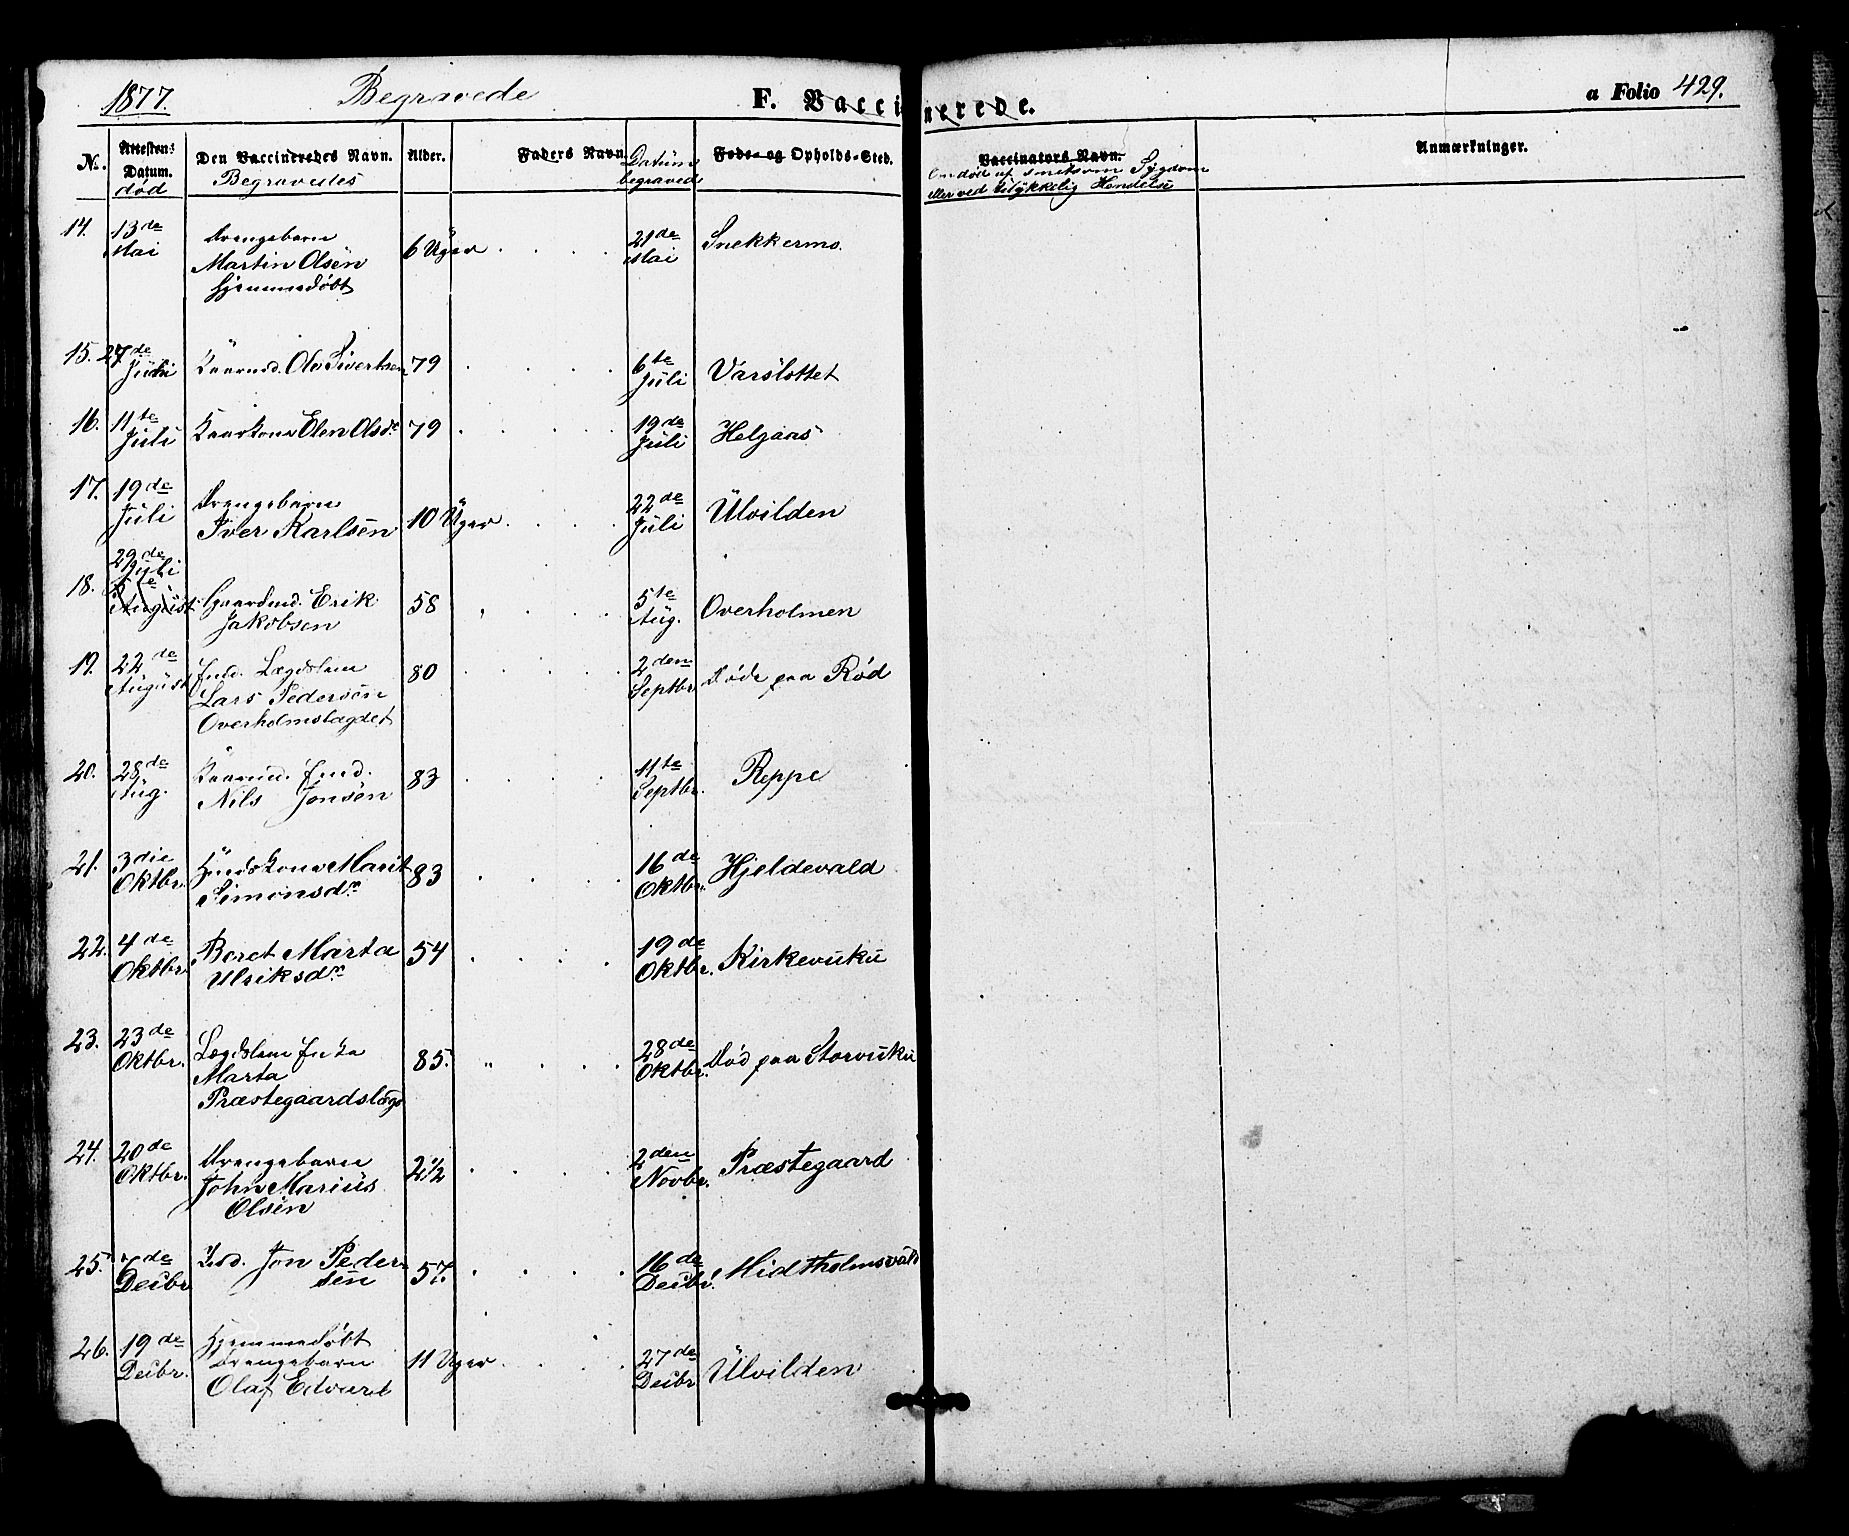 1877. Begravede F. Vaccinerede. a Folio 429.
No. Attestens Datum. død Den Vaccineredes Navn. Begravedes Alder. Faders Navn. Datum begraved Føde- og Opholds-Sted. Vaccinators Navn. Anmærkninger.
Om død af smitsom Sygdom
eller ved Ulykkelig Hændelse
14. 13de Mai Drengebarn
Martin Olsen 6 Uger 21de Mai Snekkermo.
Hjemmedøbt
15. 27de Juni Kaarmd. Ole Sivertsen 79 6te Juli Varslottet
16. 11te Juli Kaarkone Elen Olsdr 79 19de Juli Helgaas
17. 19de Juli Drengebarn
Iver Karlsen 10 Uger 22de Juli Ulvilden
29de Juli
18. August Gaardmd. Erik 58 5te Aug. Overholmen
Jakobsen
19. 22de August Ind. Lægdslem 80 2den Septbr. Døde paa Rød
Lars Pedersen
Overholmslægdet
20. 28de Aug. Kaarmd. Ind.
Nils Jonsen 83 11te Septbr. Reppe
21. 3die Oktbr. Indskone Marit 83 16de Oktbr. Hjeldevald
Simonsdr
22. 4de Oktbr. Beret Marta 54 19de Oktbr. Kirkevuku
Ulriksdr
23. 23de Oktbr. Lægdslem Enka 85. 28de Oktbr. Død paa Storvuku
Marta
Præstegaardslægd
24. 20de Oktbr. Drengebarn 2 1/2 2den Novbr. Præstegaard
John Marius
Olsen
25. 6de Decbr. Ind. Jon Peder 57. 16de Decbr. Midtholmsvald
sen
26. 19de Decbr. Hjemmedøbt
Drengebarn 11 Uger 27de Decbr Ulvilden
Olaf Edvard